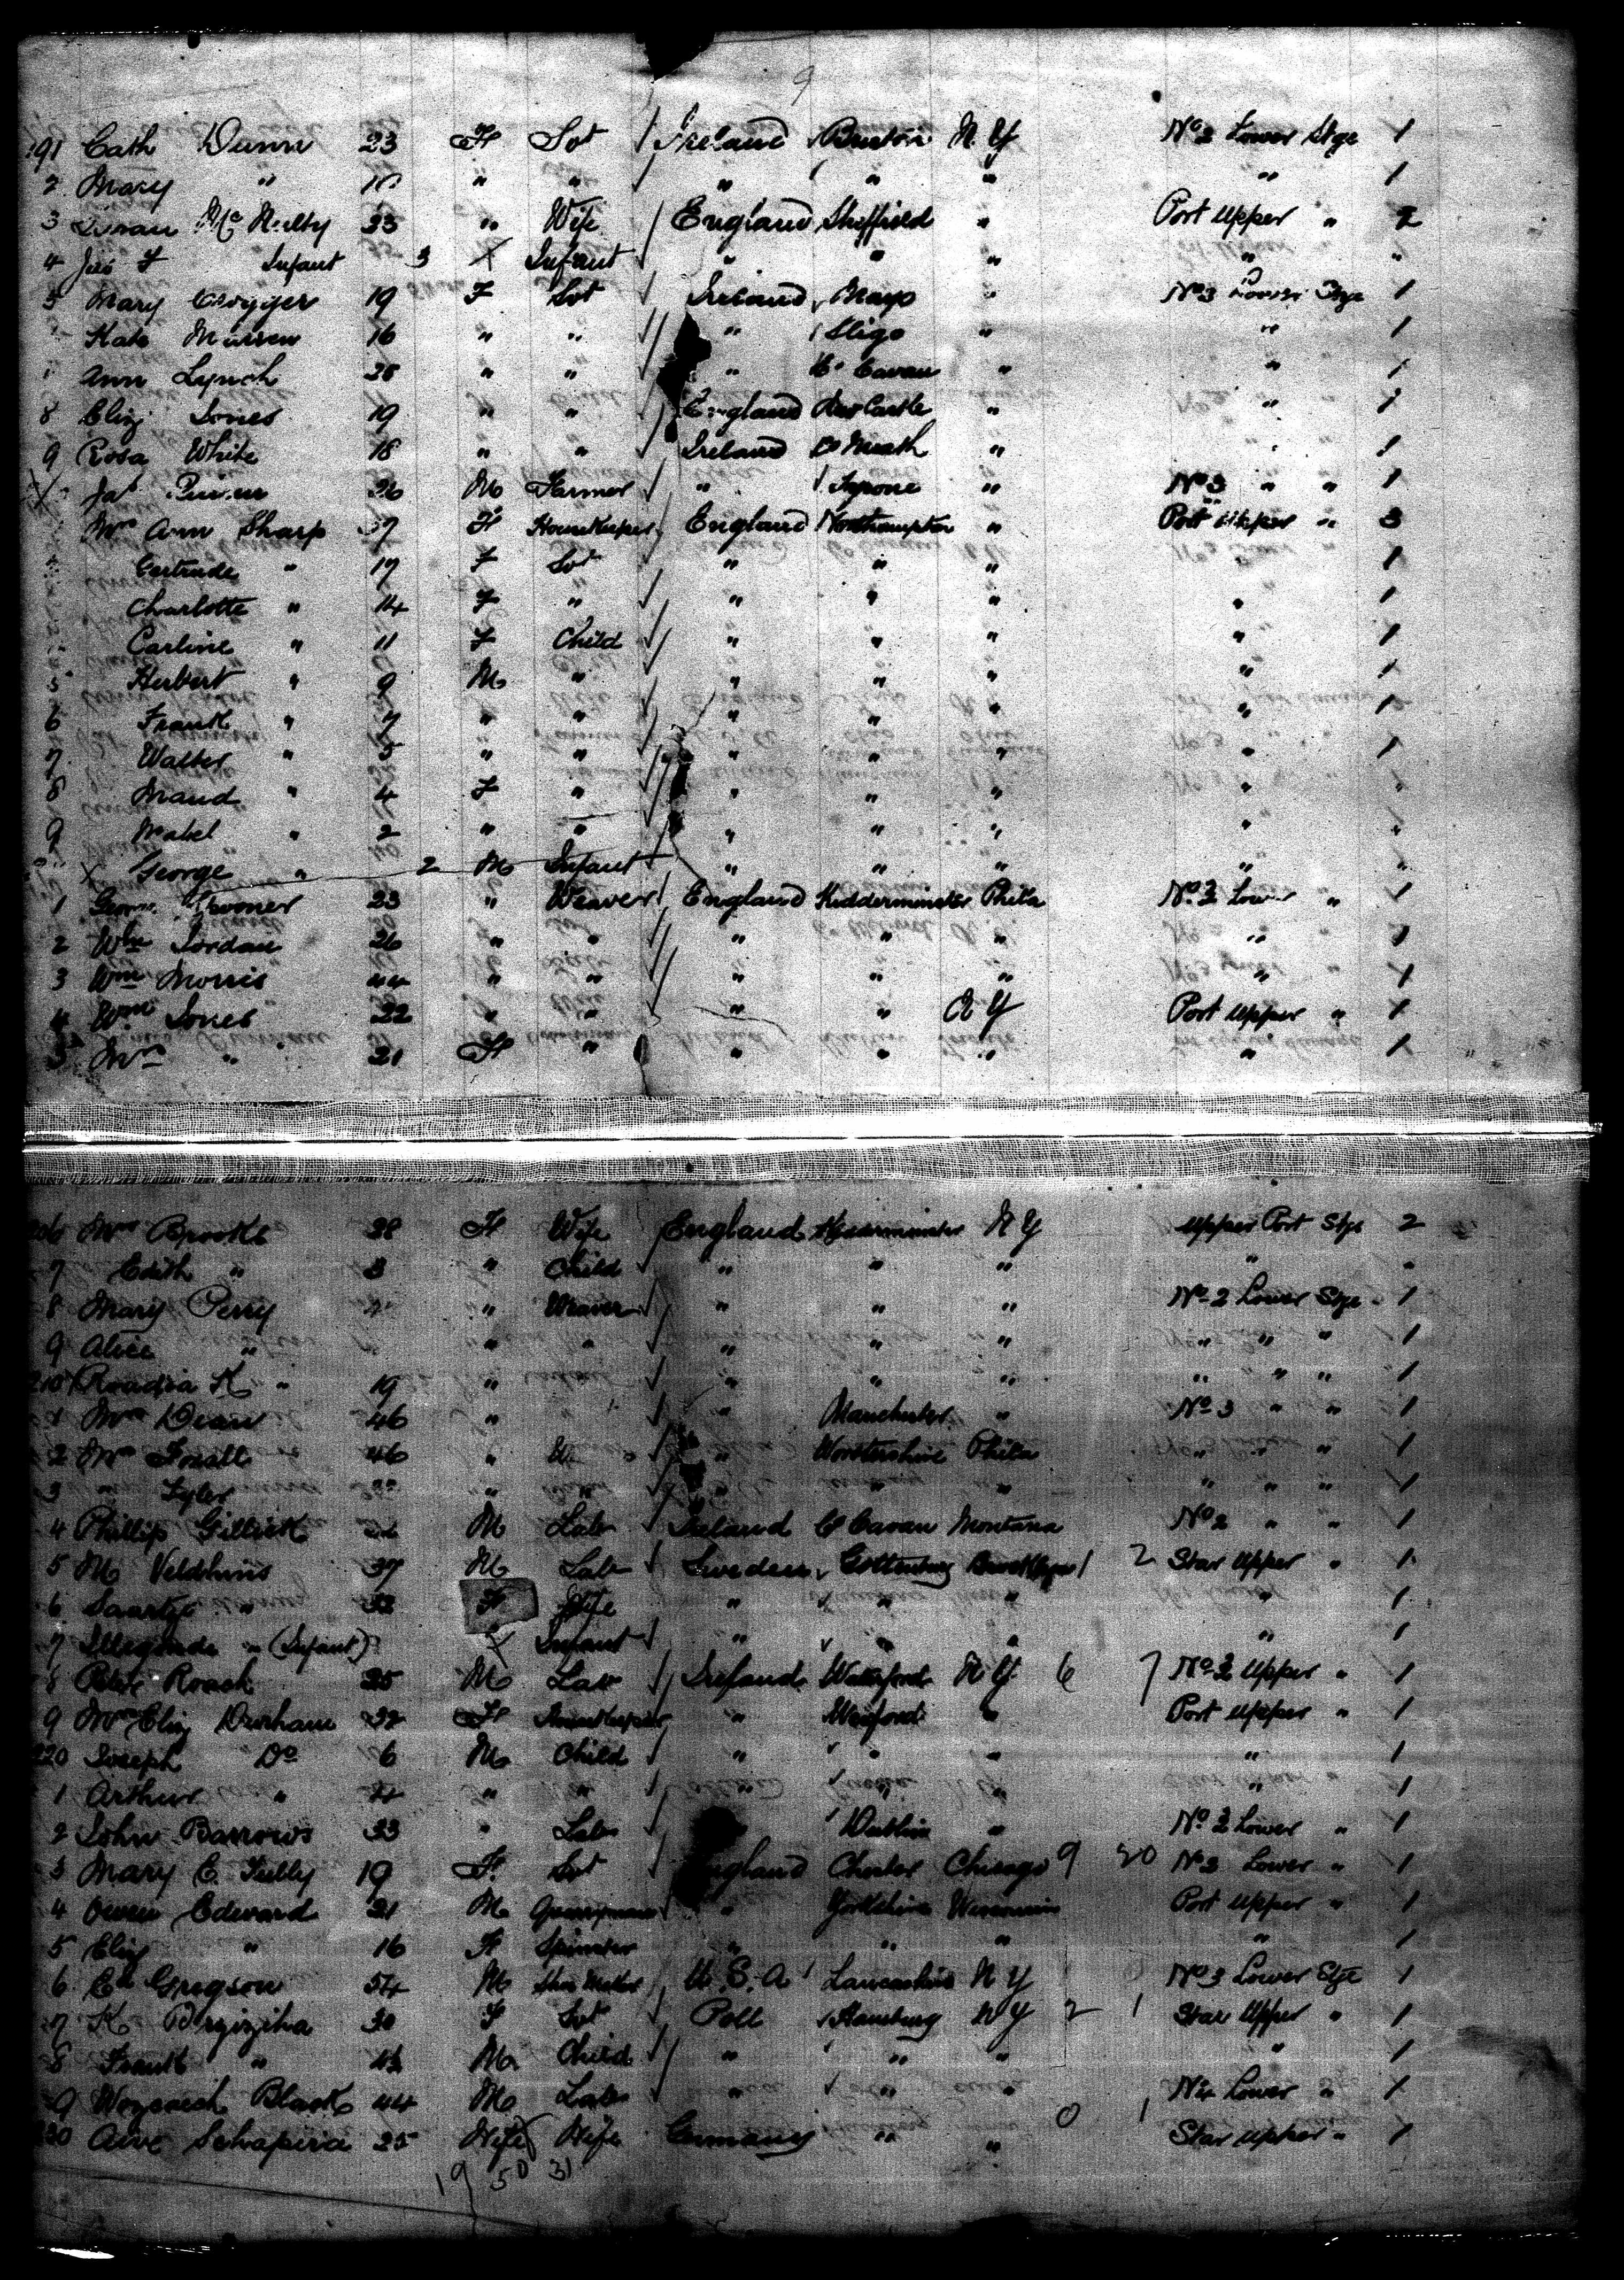 9
191 Cath Dunn 23 F Svt Ireland N.Y No 2 Lower Stge 1
2 Mary " " " " " " " 1
3 Susan Mc Nulty 33 " Wife England Sheffield " Port Upper " 2
4 Infant 3 Infant " " " " "
5 Mary 19 F Svt Ireland Mayo " No 3 Lower Stge 1
Kate 16 " " " Sligo " " 1
Ann Lynch 25 " " " Co Cavan " " 1
8 Eliz Jones 19 " " England New Castle " " 1
9 Rosa White 18 " " Ireland Co Meath " " 1
Jas 26 M Farmer " Tyrone " No 3 " " 1
Mrs Ann Sharp 37 F HouseKeeper England Northampton " Port Upper " 3
Gertrude " 17 F Svt " " " 1
Charlotte " 14 F " " " " " 1
Carline " 11 F Child " " " " 1
5 Herbert " 9 M " " " " " 1
6 Frank " 7 " " " " " " 1
7 Walter " 5 " " " " " " 1
8 Maud " 4 F " " " " " "
9 Mabel " 2 " " " " " " "
George " 2 M Infant " " " " "
1 33 " Weaver England Kidderminster Phila No 2 Lower " 1
2 Wm Jordan 26 " " " " " " 1
3 Wm Morris 44 " " " " " " 1
4 Wm Jones 22 " " " " N Y Port Upper " 1
5 Mrs " 21 F " " " " " 1
206 Mrs Brooks 38 F Wife England Kidderminster N Y Upper Port Stge 2
7 Edith " 3 " Child " " " " "
8 Mary Perry " Weaver " " " No 2 Lower Stge 1
9 Alice " " " " " " " " " 1
210 K " 19 " " " " " " " 1
1 Mrs Dean 46 " " " Manchester " No 3 " " 1
2 Mrs 46 " " Worstershire Phila " " " 1
3 " Tyler " " " " " " " 1
4 Phillip Gillick M Lab Ireland Co Cavan Montana No 2 " " 1
5 M Veldhuis 37 M Lab Sweden Gottenburg 2 Star Upper " 1
6 Saartje " 32 F Wife " " " " 1
7 " (Infant) Infant " " " " 1
8 Peter Roach 25 M Lab Ireland Waterford N Y 6 7 No 2 Upper " 1
9 Mrs Eliz Durham 32 F Housekeeper " Wexford " Port Upper " 1
220 Joseph Do 6 M Child " " " " 1
1 Arthur " 4 " " " " " " 1
2 John Barrows 33 " Lab " Dublin " No 2 Lower " 1
3 Mary E. Tully 19 F Svt England Chester Chicago 9 20 No 3 Lower " 1
4 Owen Edward 21 M Quarryman " Yorkshire Wisconsin Port Upper " 1
5 Eliz " 16 F Spinster " " " " 1
6 Ed Gregson 54 M Shoe Maker U.S.A Lancashire N Y No 3 Lower Stge 1
7 K 30 F Svt Poll Hamburg N Y 2 1 Star Upper " 1
8 Frank " M Child " " " " 1
9 Black 44 M Lab " " " No 4 Lower " 1
230 Schapira 25 Wife Wife Germany " " 0 1 Star Upper " 1
19 50 31